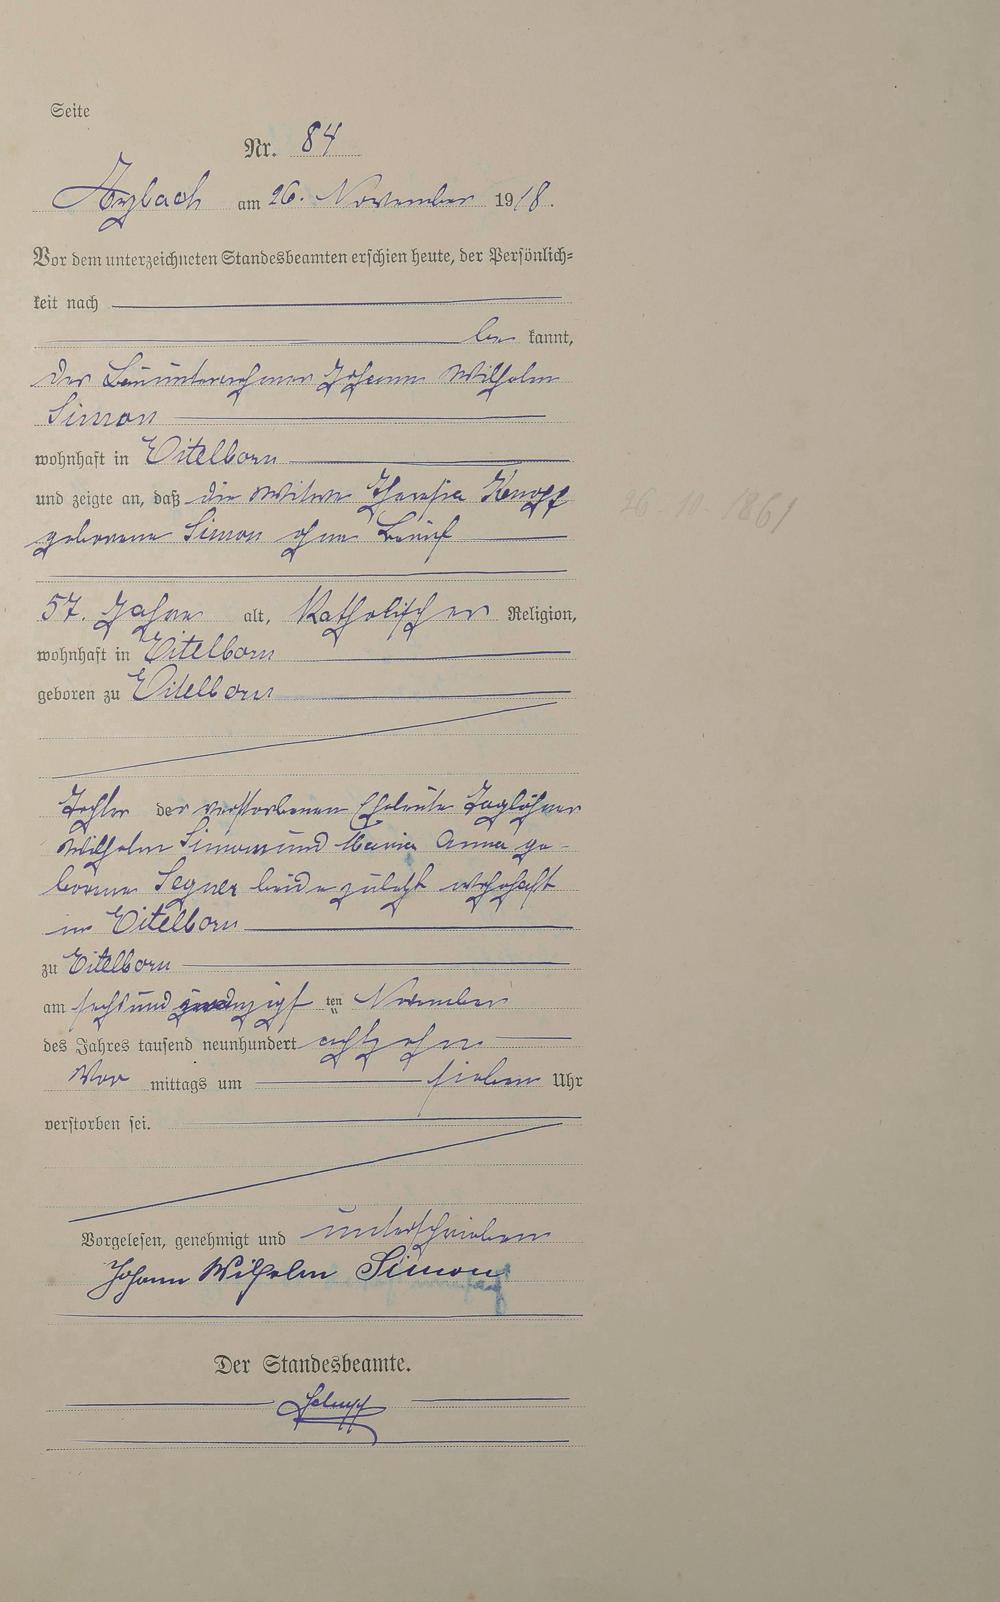 Seite
Nr. 84
Arzbach am 26. November 1918.
Vor dem unterzeichneten Standesbeamten erschien heute, der Persönlich=
keit nach
be kannt,
der Bauunternehmer Johann Wilhelm
Simon
wohnhaft in Eitelborn
und zeigte an, daß die Witwe Theresia Knopp
geborene Simon ohne Beruf
26.10.1861
57. Jahre alt, Katholischer Religion,
wohnhaft in Eitelborn
geboren zu Eitelborn
Tochter der verstorbenen Eheleute Taglöhner
Wilhelm Simon und Maria Anna ge-
borene Segner beide zuletzt wohnhaft
in Eitelborn
zu Eitelborn
am sechsundzwanzigsten November
des Jahres tausend neunhundert achtzehn
Vor mittags um sieben Uhr
verstorben sei.
Vorgelesen, genehmigt und unterschrieben
Johann Wilhelm Simon
Der Standesbeamte.